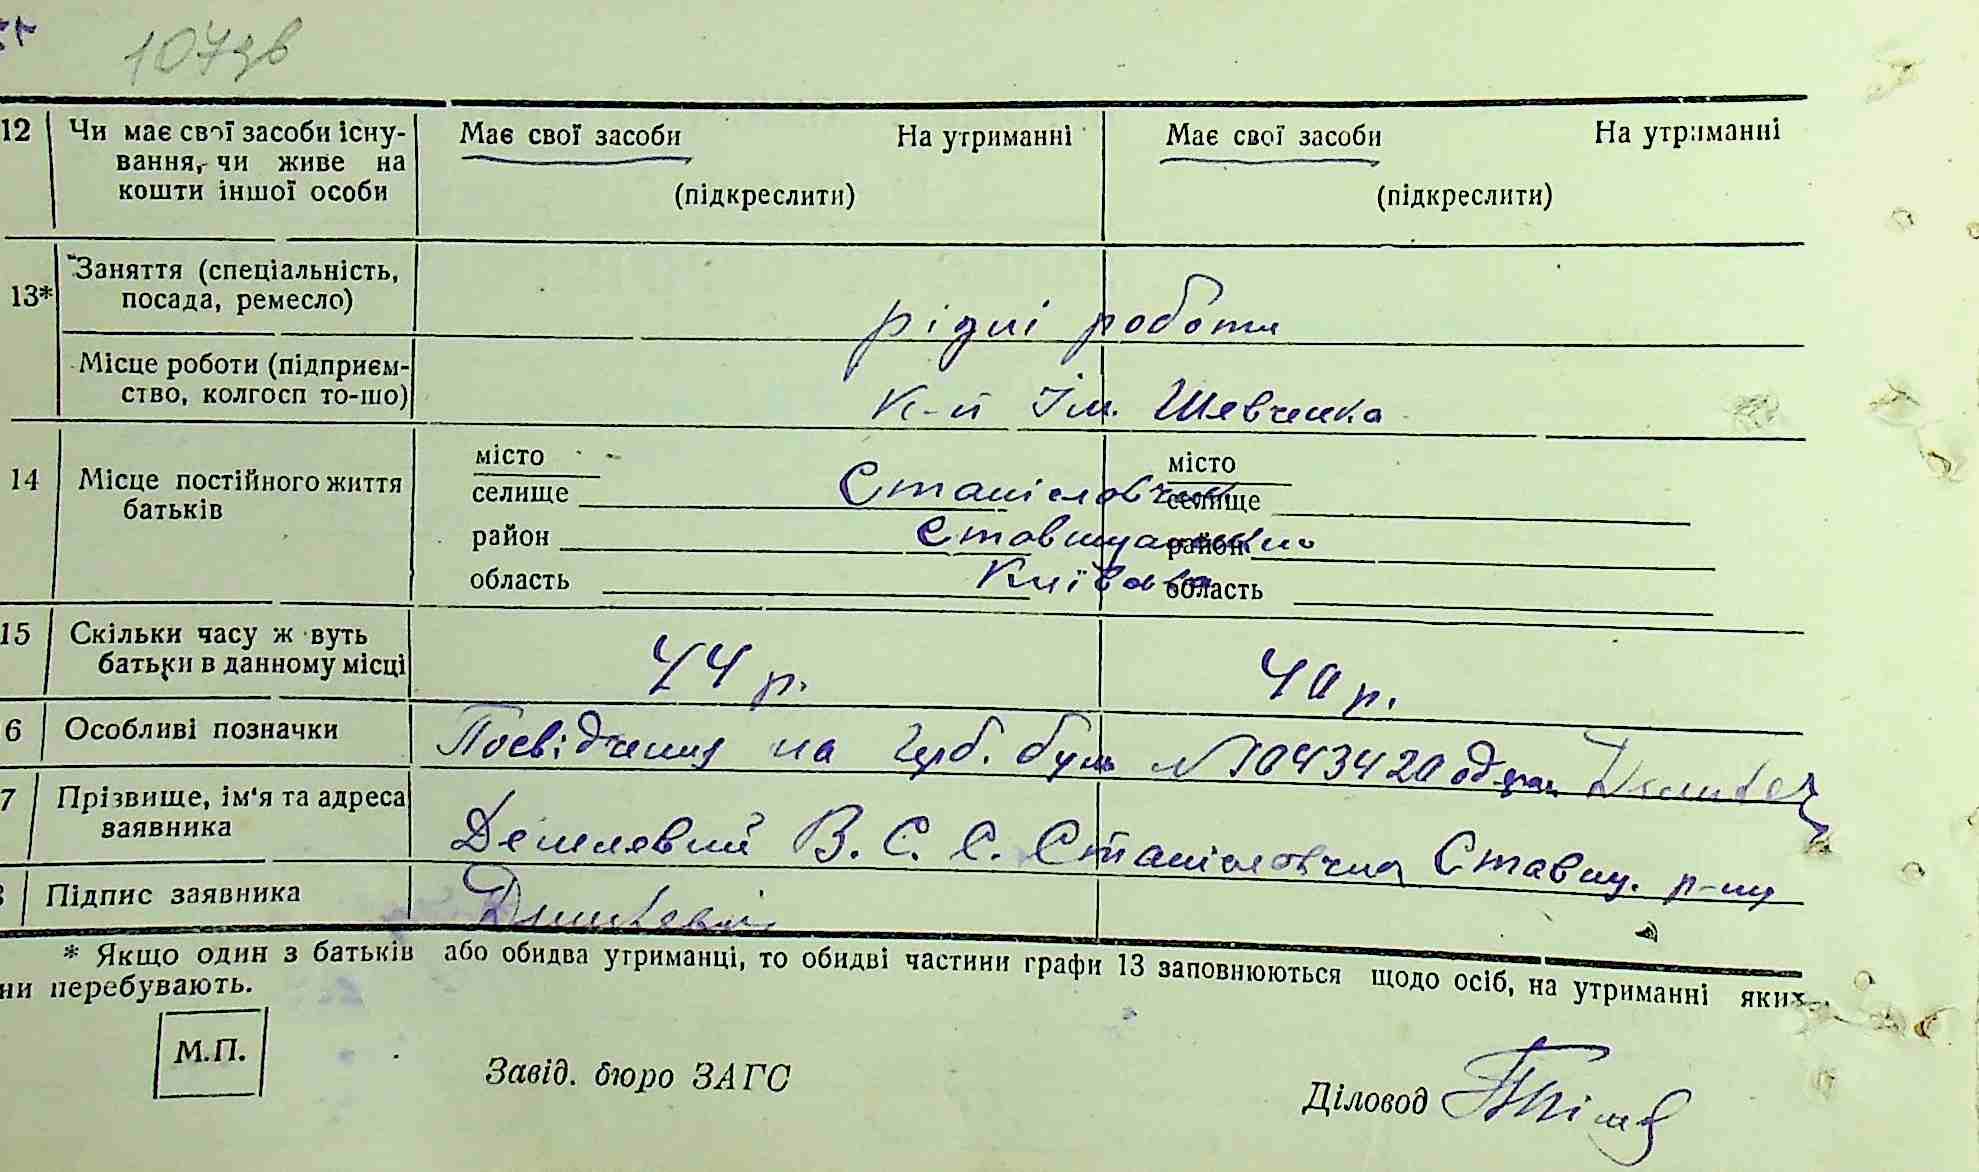 107зв
12 Чи має свої засоби існу-
вання, чи живе на
кошти іншої особи
Має свої засоби На утриманні
(підкреслити)
Має свої засоби На утриманні
(підкреслити)
13* Заняття (спеціальність,
посада, ремесло)
рідні роботи
Місце роботи (підприєм-
ство, колгосп то-шо)
к-п Ім. Шевченка
14 Місце постійного життя
батьків
місто
селище Станіславчик
район Ставищанський
область Київська
місто
селище
район
область
15 Скільки часу ж вуть
батьки в данному місці
44 р. 40 р.
6 Особливі позначки
Посвідчення на
7 Прізвище, ім'я та адреса
заявника
Дешевий В. С. С. Станіславчик Ставищ. р-ну
Підпис заявника
* Якщо один з батьків або обидва утриманці, то обидві частини графи 13 заповнюються щодо осіб, на утриманні яких
ни перебувають.
М.П.
Завід. бюро ЗАГС
Діловод